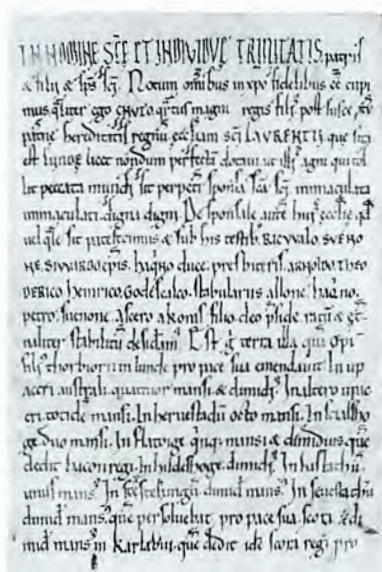 IN NOMINE SCE ET INDIVIDVE TRINITATIS. patris
& filii & sps sci. Notum omnibus in xpo fidelibus ee cupi
mus qualiter ego CNVTO. quartus magni regis fili' post suscep tu
paterne hereditatis regnu. eccliam sci LAVRENTII que sita
est lunde licet nondum perfecta dotavi ut illi' agni qui tol
lit peccata mundi. sit perpeti sponsa sca sci immaculata
immaculati. digna digni. De sponsalie aute hui' ecclie qd
vel que sit patefecimus & sub his testib. RICVVALO. SVENO
NE. SIVVARDO epis. haqno duce. presbiteris ARNOLDO. THEO
DERICO henrico. Godescalco. stabulariis allone. haqno.
petro. suenone. Ascero aeromis filio. deo pside ratu & et
naliter stabilitu desidam'. Est g terra illa qua opi
fili' thorbiorn in lunde pro pace sua emendavit. In up
aceri australi. quattuor mansi. & dimidi'. In altero uppa
ceri. totide mansi. In heruestadu octo mansi. In sciallsho
ge duo mansi. In flatoige quinq; mansi & dimidius. que
dedit hacon regi. In hildeshoge. dimidi'. In hastadu.
unus mans'. In stefningu dimid mans'. In seuestadu
dimid mans'. que persoluebat pro pace sua. scora & di
mid mans' in karlabiu. que dedit ide scora regi pro